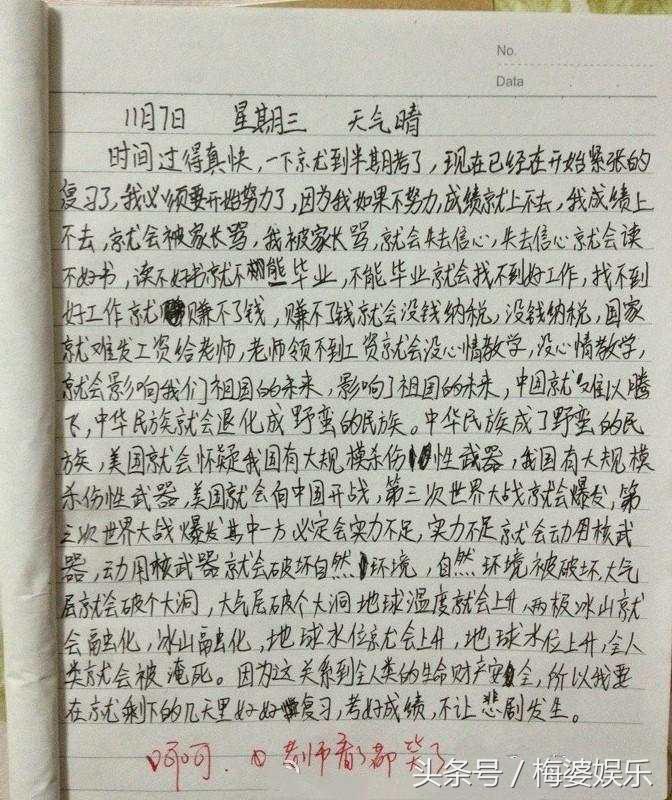 No.
Data
11月7日 星期三 天气晴
时间过得真快，一下就到半期考了，现在已经在开始紧张的
复习了，我必须要开始努力了，因为我如果不努力，成绩就上不去，我成绩上
不去，就会被家长骂，我被家长骂，就会失去信心，失去信心就会读
不好书，读不好书就不能毕业，不能毕业就会找不到好工作，找不到
好工作就赚不了钱，赚不了钱就会没钱纳税，没钱纳税，国家
就难发工资给老师，老师领不到工资就会没心情教学，没心情教学，
就会影响我们祖国的未来，影响了祖国的未来，中国就难以腾
飞，中华民族就会退化成野蛮的民族。中华民族成了野蛮的民
族，美国就会怀疑我国有大规模杀伤性武器，我国有大规模
杀伤性武器，美国就会向中国开战，第三次世界大战就会爆发，第
三次世界大战爆发其中一方必定会实力不足，实力不足就会动用核武
器，动用核武器就会破坏自然环境，自然环境被破坏，大气
层就会破个大洞，大气层破个大洞地球温度就会上升，两极冰山就
会融化，冰山融化，地球水位就会上升，地球水位上升，全人
类就会被淹死。因为这关系到全人类的生命财产安全，所以我要
在就剩下的几天里好好复习，考好成绩，不让悲剧发生。
呵呵．老师看了都笑了
头条号／梅婆娱乐